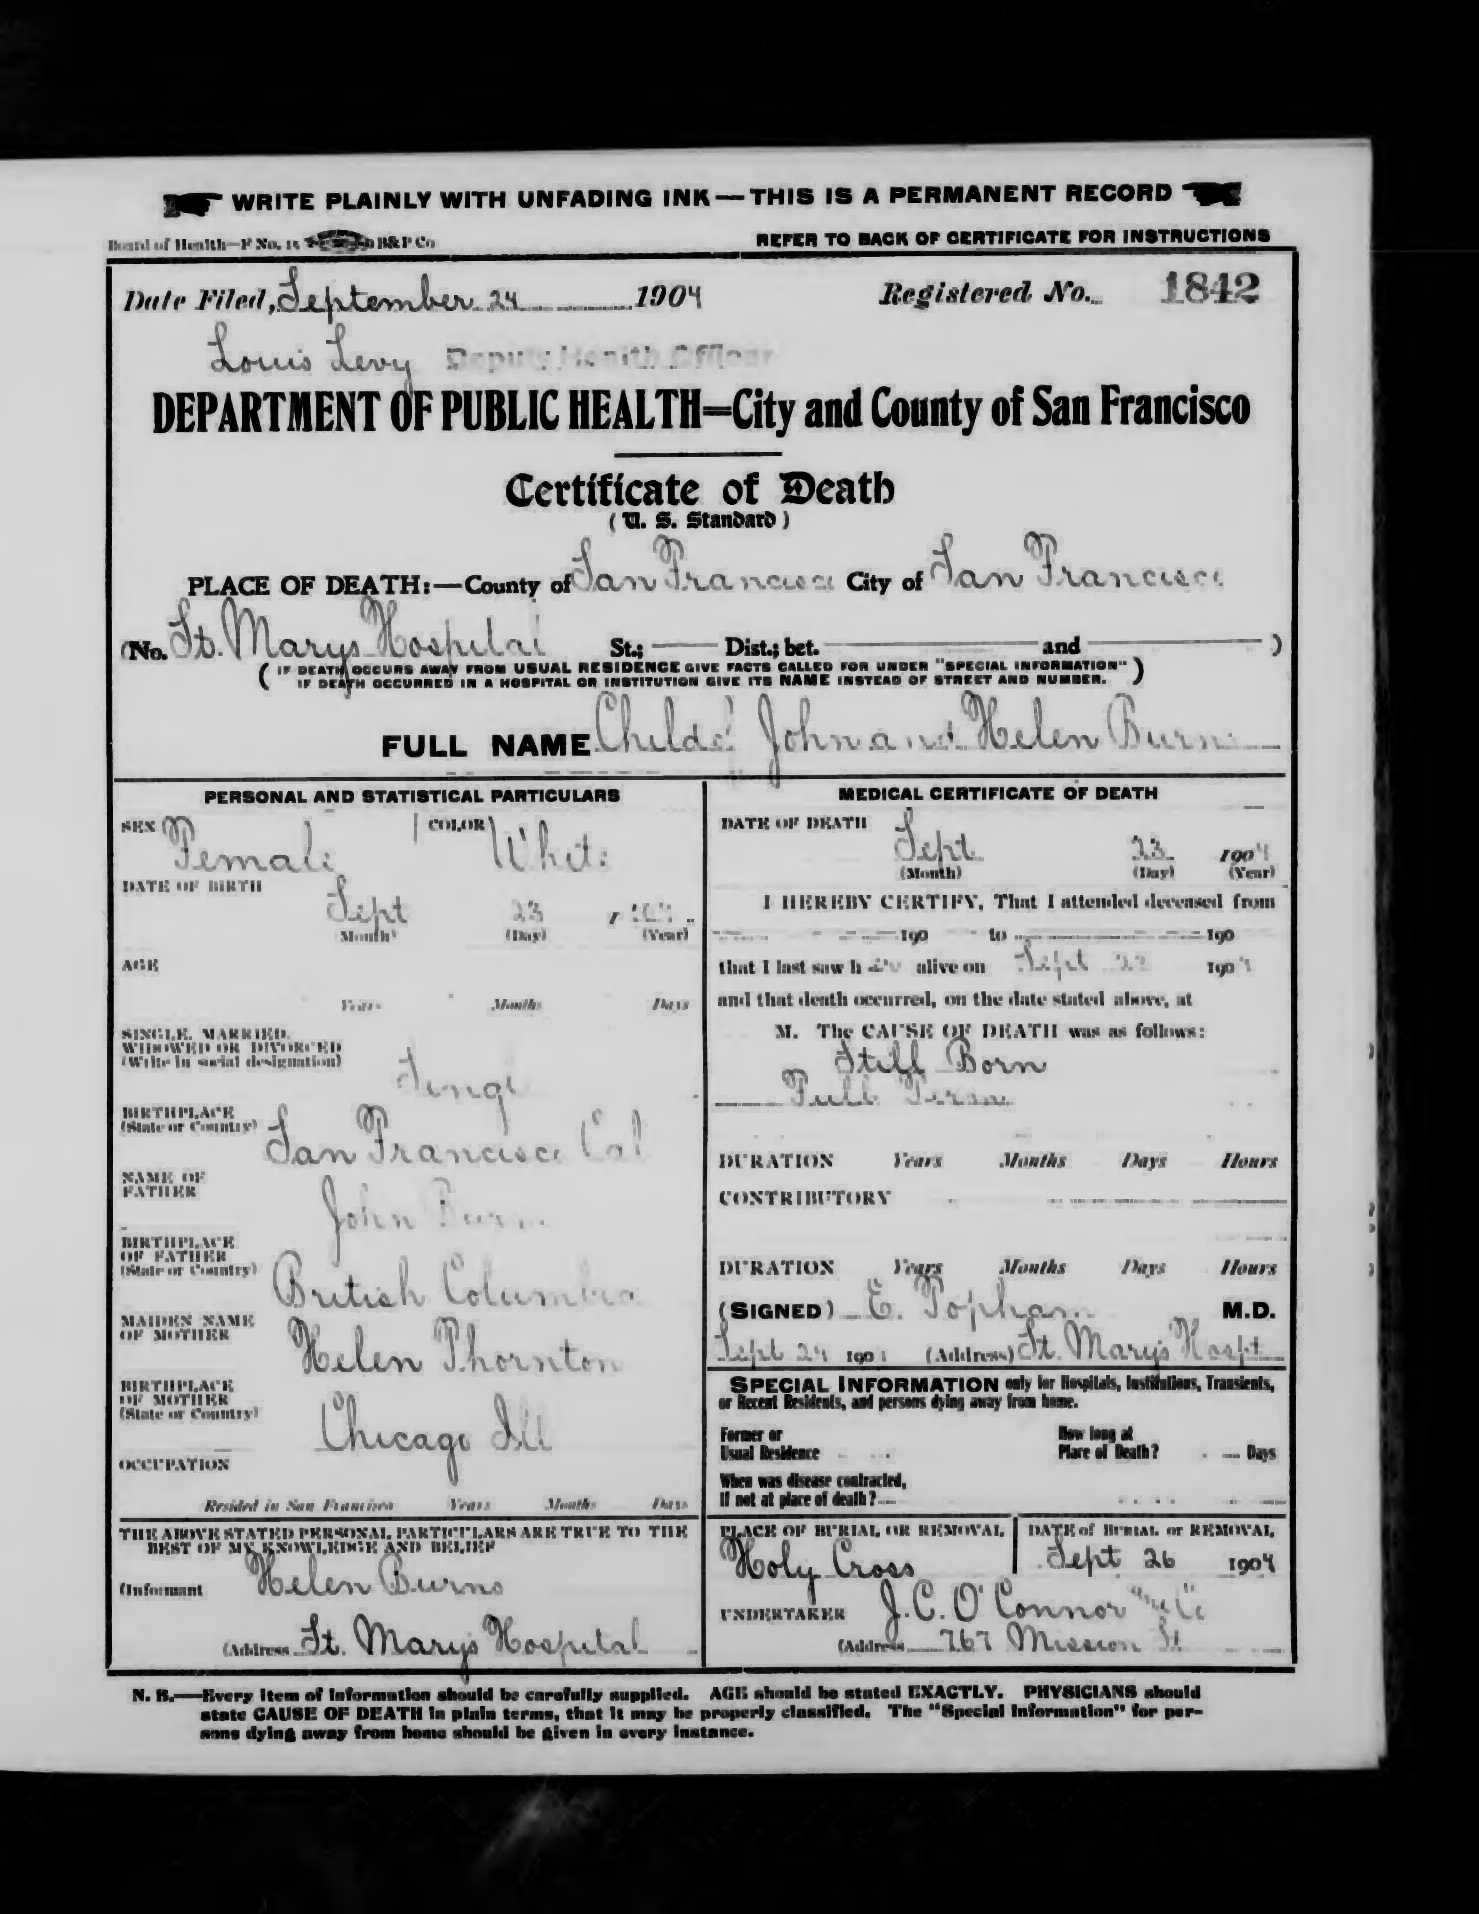 WRITE PLAINLY WITH UNFADING INK — THIS IS A PERMANENT RECORD
Board of Health—F No. 15 B&P Co
REFER TO BACK OF CERTIFICATE FOR INSTRUCTIONS
Date Filed, September 24 1904 Registered No. 1842
Louis Levy Deputy Health Officer
DEPARTMENT OF PUBLIC HEALTH=City and County of San Francisco
Certificate of Death
(U. S. Standard)
PLACE OF DEATH:—County of San Francisco City of San Francisco
(No. St. Marys Hospital St.; Dist.; bet. and )
( IF DEATH OCCURS AWAY FROM USUAL RESIDENCE GIVE FACTS CALLED FOR UNDER "SPECIAL INFORMATION" )
IF DEATH OCCURRED IN A HOSPITAL OR INSTITUTION GIVE ITS NAME INSTEAD OF STREET AND NUMBER.
FULL NAME Child of John and Helen Burns
PERSONAL AND STATISTICAL PARTICULARS
SEX Female COLOR White
DATE OF BIRTH
Sept 23
(Month) (Day) (Year)
AGE
Years Months Days
SINGLE, MARRIED,
WIDOWED OR DIVORCED
(Write in social designation)
Single
BIRTHPLACE
(State or Country)
San Francisco Cal
NAME OF
FATHER
John Burns
BIRTHPLACE
OF FATHER
(State or Country)
British Columbia
MAIDEN NAME
OF MOTHER
Helen Thornton
BIRTHPLACE
OF MOTHER
(State or Country)
Chicago Ill
OCCUPATION
Resided in San Francisco Years Months Days
THE ABOVE STATED PERSONAL PARTICULARS ARE TRUE TO THE
BEST OF MY KNOWLEDGE AND BELIEF
(Informant Helen Burns
(Address St. Marys Hospital
MEDICAL CERTIFICATE OF DEATH
DATE OF DEATH
Sept 23 1904
(Month) (Day) (Year)
I HEREBY CERTIFY, That I attended deceased from
190 to 190
that I last saw h alive on Sept 1904
and that death occurred, on the date stated above, at
M. The CAUSE OF DEATH was as follows:
Still Born
Full Term
DURATION Years Months Days Hours
CONTRIBUTORY
DURATION Years Months Days Hours
(SIGNED) E. Topham M.D.
Sept 24 190 (Address) St. Marys Hospt
SPECIAL INFORMATION only for Hospitals, Institutions, Transients,
or Recent Residents, and persons dying away from home.
Former or
Usual Residence
How long at
Place of Death? Days
When was disease contracted,
If not at place of death?
PLACE OF BURIAL OR REMOVAL
Holy Cross
DATE of BURIAL or REMOVAL
Sept 26 1904
UNDERTAKER J. C. O'Connor
(Address 767 Mission St
N. B.—Every item of information should be carefully supplied. AGE should be stated EXACTLY. PHYSICIANS should
state CAUSE OF DEATH in plain terms, that it may be properly classified. The "Special Information" for per-
sons dying away from home should be given in every instance.